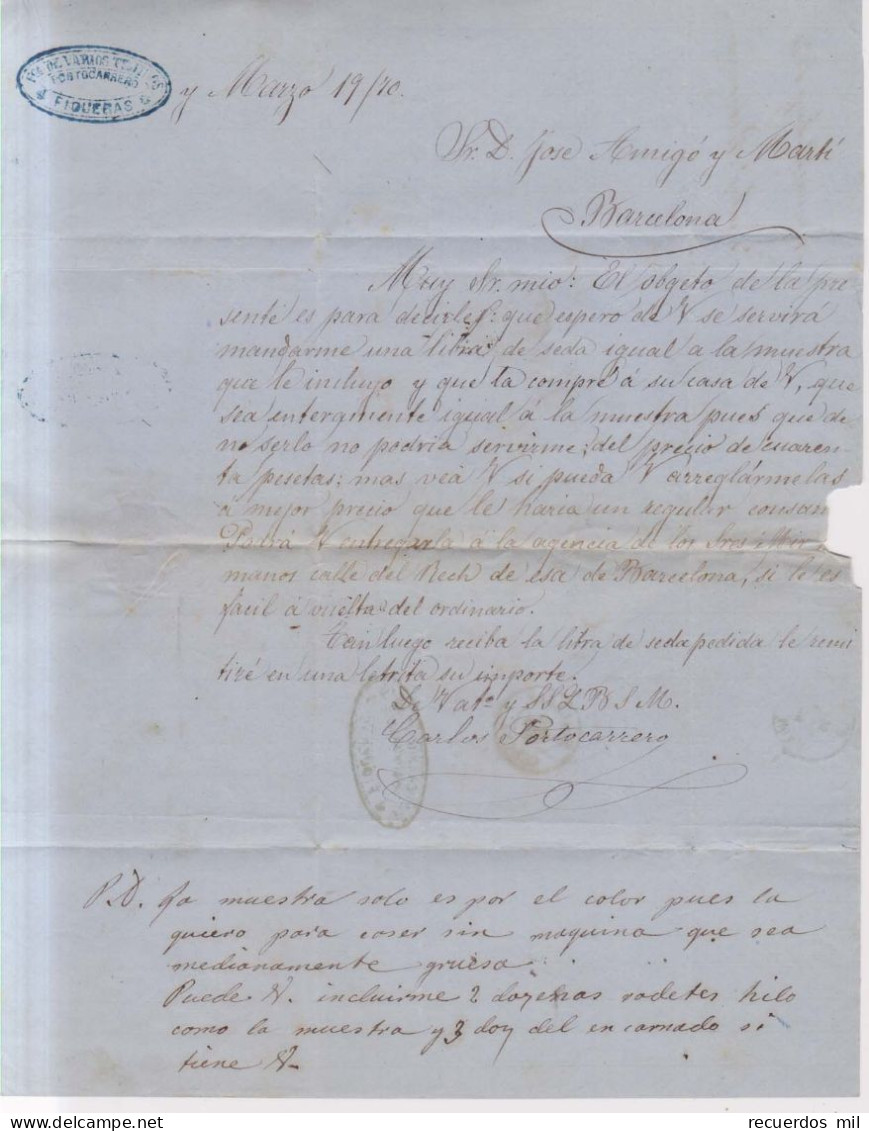 DE VARIOS
PORTOCARRERO
FIGUERAS
y Marzo 19/70.
Sr. D. Jose Amigó y Martí
Barcelona
Muy Sr. mio: El obgeto de la pre
sente es para decirle: que espero de V se servirá
mandarme una libra de seda igual a la muestra
que le incluyo y que la compré á su casa de V, que
sea enteramente igual á la muestra pues que de
no serlo no podria servirme; del precio de cuaren-
ta pesetas; mas vea V si pueda V arreglármelas
a mejor precio que le haria un regular consum
Podrá V entregarla á la agencia de los Sres
manos calle del Rech de esa de Barcelona, si le es
facil á vuelta del ordinario.
luego reciba la libra de seda pedida le remi
tiré en una letrita su importe.
De V ato y S S Q B S M.
Carlos Portocarrero
P.D. La muestra solo es por el color pues la
quiero para coser sin maquina que sea
medianamente gruesa.
Puede V. incluirme 2 dozenas rodetes hilo
como la muestra y 3 doz del encarnado si
tiene V.
recuerdos mil